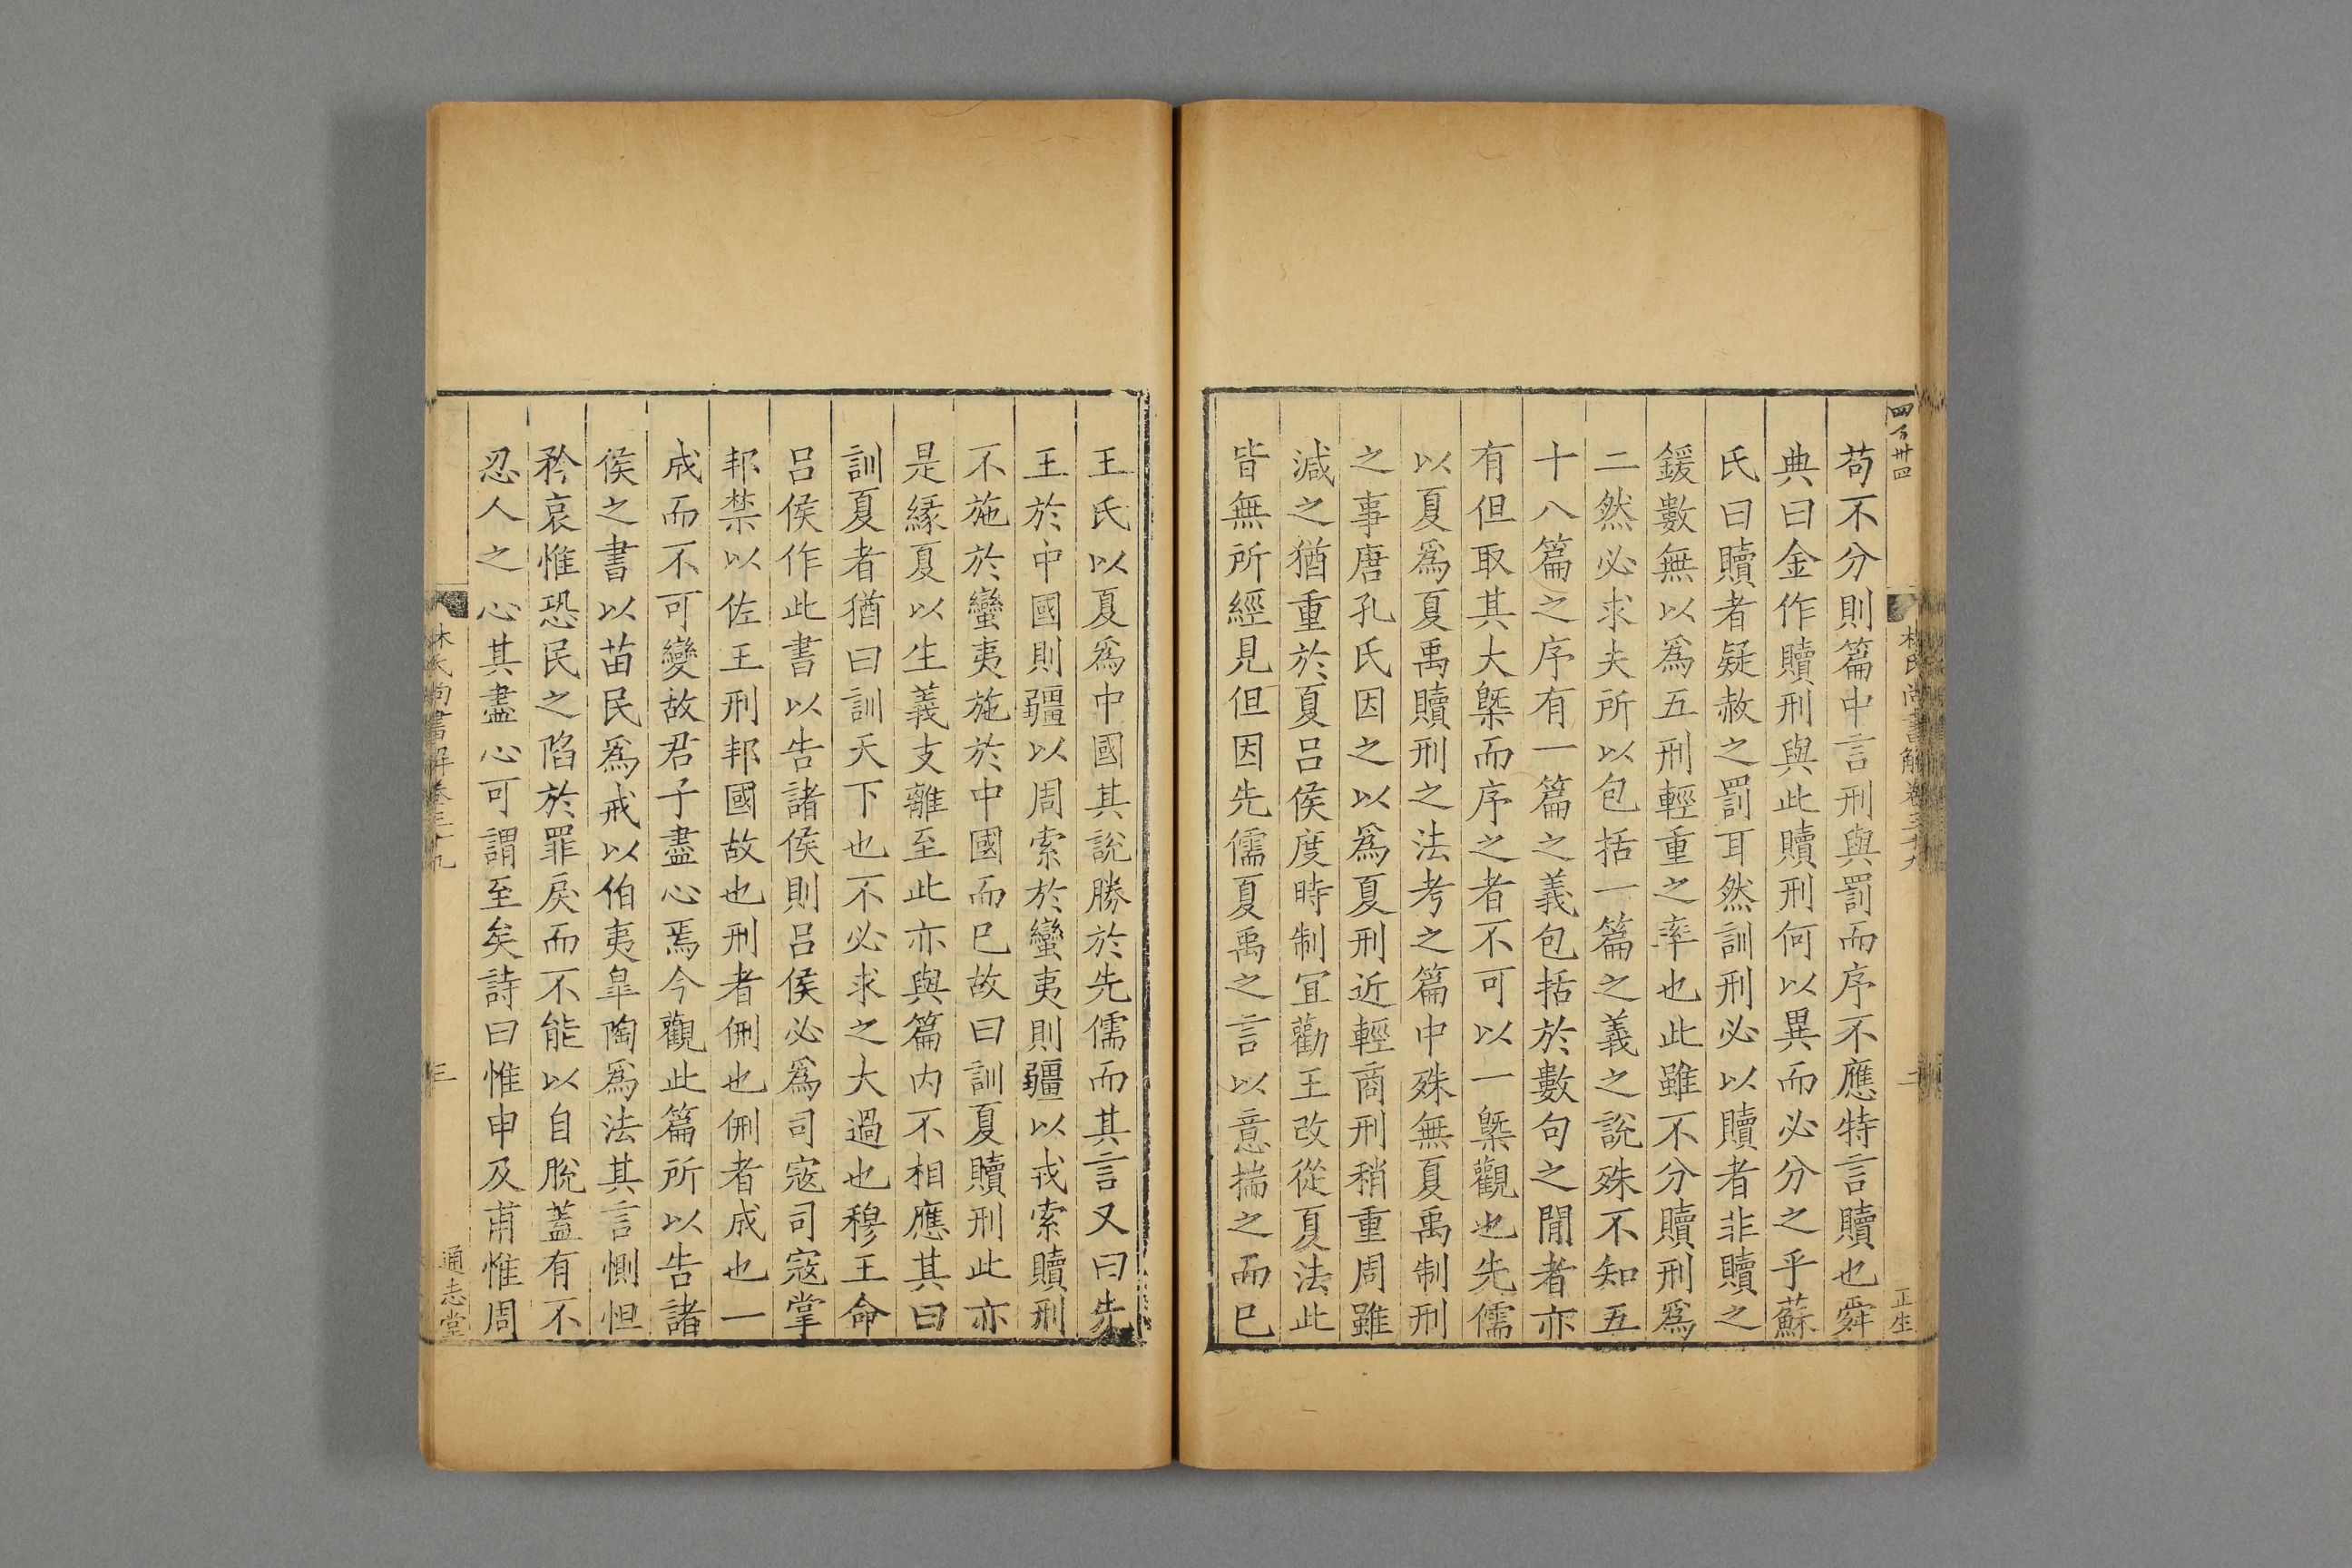 四百卅四
林氏尚書解卷三十九
二
正生
苟不分則篇中言刑與罰而序不應特言贖也舜
典曰金作贖刑與此贖刑何以異而必分之乎蘇
氏曰贖者疑赦之罰耳然訓刑必以贖者非贖之
鍰數無以爲五刑輕重之率也此雖不分贖刑爲
二然必求夫所以包括一篇之義之說殊不知五
十八篇之序有一篇之義包括於數句之閒者亦
有但取其大槩而序之者不可以一槩觀也先儒
以夏爲夏禹贖刑之法考之篇中殊無夏禹制刑
之事唐孔氏因之以爲夏刑近輕商刑稍重周雖
減之猶重於夏吕侯度時制宜勸王改從夏法此
皆無所經見但因先儒夏禹之言以意揣之而已
王氏以夏爲中國其說勝於先儒而其言又曰先
王於中國則疆以周索於蠻夷則疆以戎索贖刑
不施於蠻夷施於中國而已故曰訓夏贖刑此亦
是緣夏以生義支離至此亦與篇内不相應其曰
訓夏者猶曰訓天下也不必求之大過也穆王命
吕侯作此書以告諸侯則吕侯必爲司寇司寇掌
邦禁以佐王刑邦國故也刑者侀也侀者成也一
成而不可變故君子盡心焉今觀此篇所以告諸
侯之書以苗民爲戒以伯夷臯陶爲法其言惻怛
矜哀惟恐民之陷於罪戾而不能以自脫蓋有不
忍人之心其盡心可謂至矣詩曰惟申及甫惟周
林氏尚書解卷三十九
三
通志堂